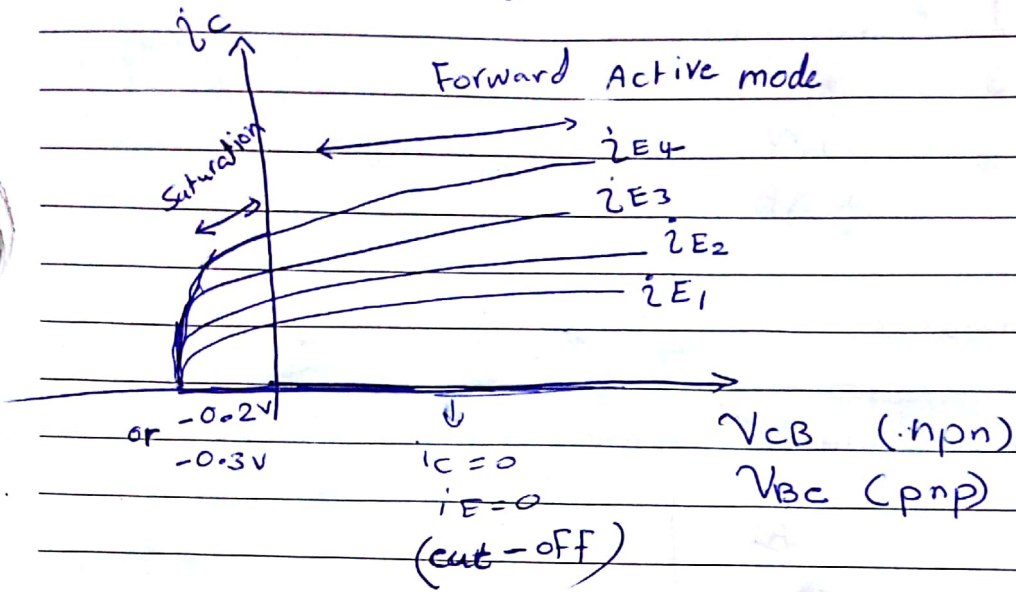 iC
Forward Active mode
Suturation
iE4
iE3
iE2
iE1
or -0.2V
-0.3V
iC = 0
iE = 0
(cut-off)
VCB (.npn)
VBC (pnp)